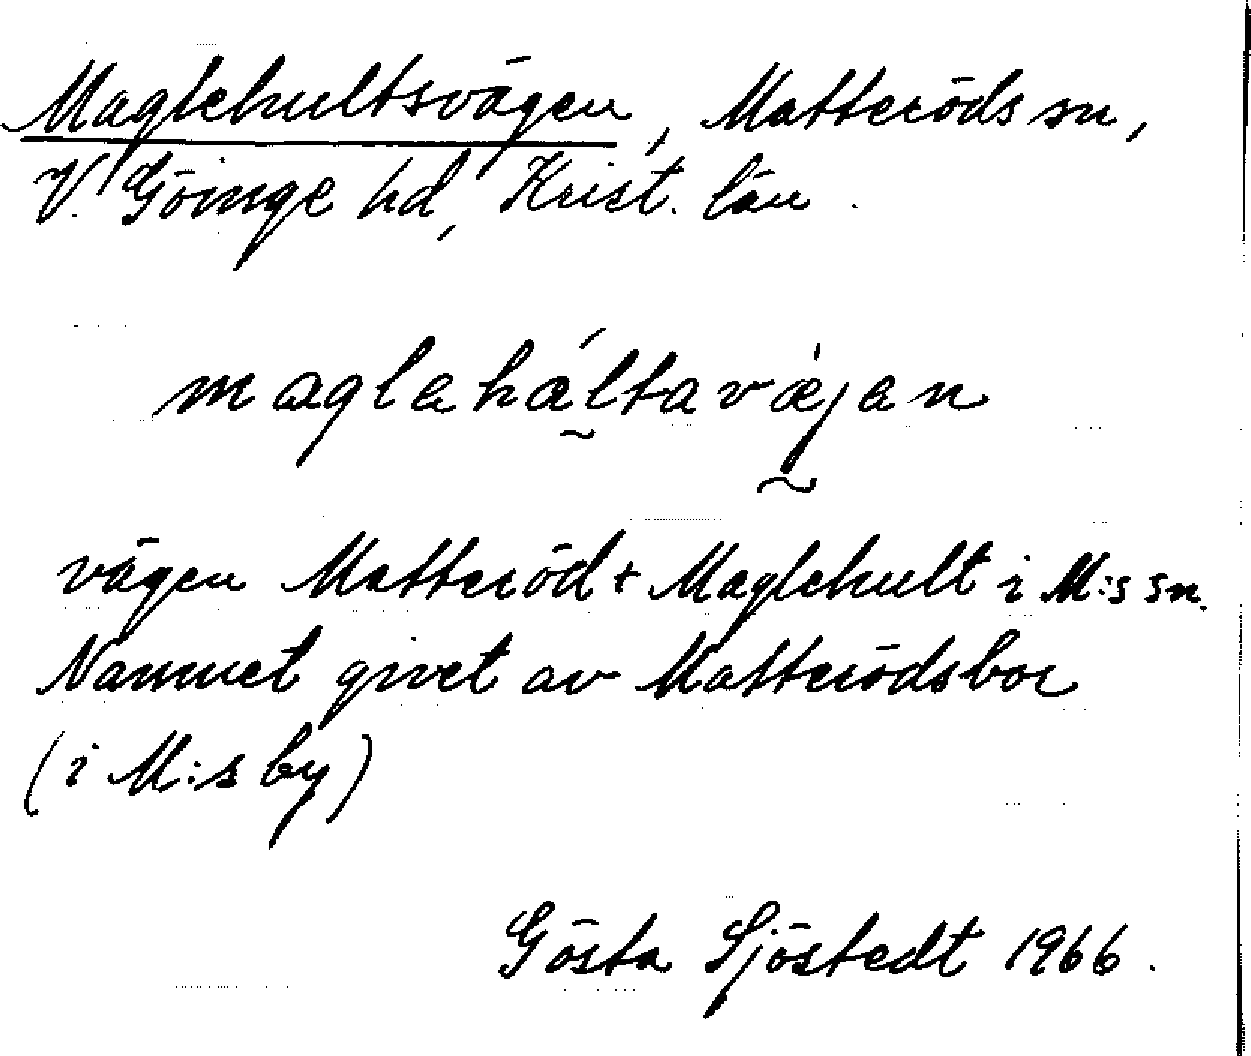 Maglehultsvägen, Matteröds sn,
V. Göinge hd, Krist. län.
maglahúltavæjan
vägen Matteröd + Maglehult i M:s sn.
Namnet givet av Matterödsbor
(i M:s by)
Gösta Sjöstedt 1966.